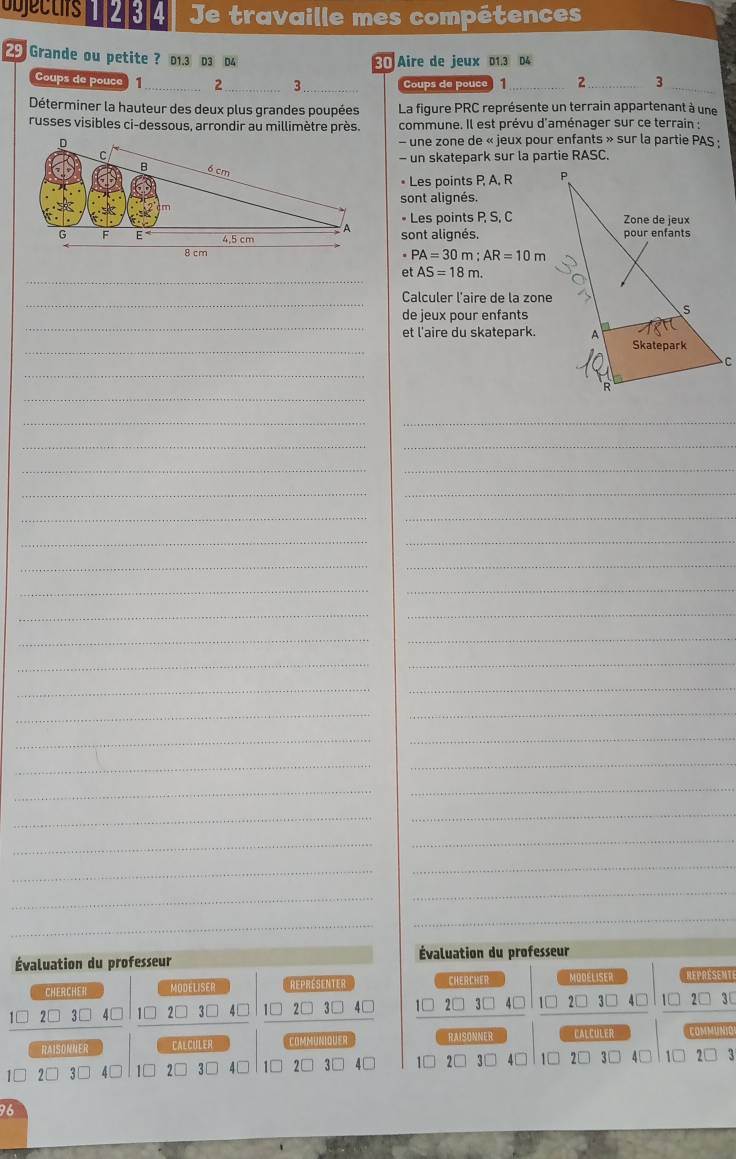 Objectifs 1 2 3 4 Je travaille mes compétences
29 Grande ou petite ? D1.3 D3 D4
Coups de pouce 1 2 3
Déterminer la hauteur des deux plus grandes poupées
russes visibles ci-dessous, arrondir au millimètre près.
D
C
B
6 cm
2 cm
A
G F E
4,5 cm
8 cm
30 Aire de jeux D1.3 D4
Coups de pouce 1 2 3
La figure PRC représente un terrain appartenant à une
commune. Il est prévu d'aménager sur ce terrain :
– une zone de « jeux pour enfants » sur la partie PAS ;
– un skatepark sur la partie RASC.
• Les points P, A, R
sont alignés.
• Les points P, S, C
sont alignés.
• PA = 30 m ; AR = 10 m
et AS = 18 m.
Calculer l'aire de la zone
de jeux pour enfants
et l'aire du skatepark.
P
Zone de jeux
pour enfants
30M
S
18M
A
Skatepark
C
10M
R
Évaluation du professeur
CHERCHER MODÉLISER REPRÉSENTER
1□ 2□ 3□ 4□ 1□ 2□ 3□ 4□ 1□ 2□ 3□ 4□
RAISONNER CALCULER COMMUNIQUER
1□ 2□ 3□ 4□ 1□ 2□ 3□ 4□ 1□ 2□ 3□ 4□
Évaluation du professeur
CHERCHER MODÉLISER REPRÉSENTE
1□ 2□ 3□ 4□ 1□ 2□ 3□ 4□ 1□ 2□ 3□
RAISONNER CALCULER COMMUNIQ
1□ 2□ 3□ 4□ 1□ 2□ 3□ 4□ 1□ 2□ 3
96